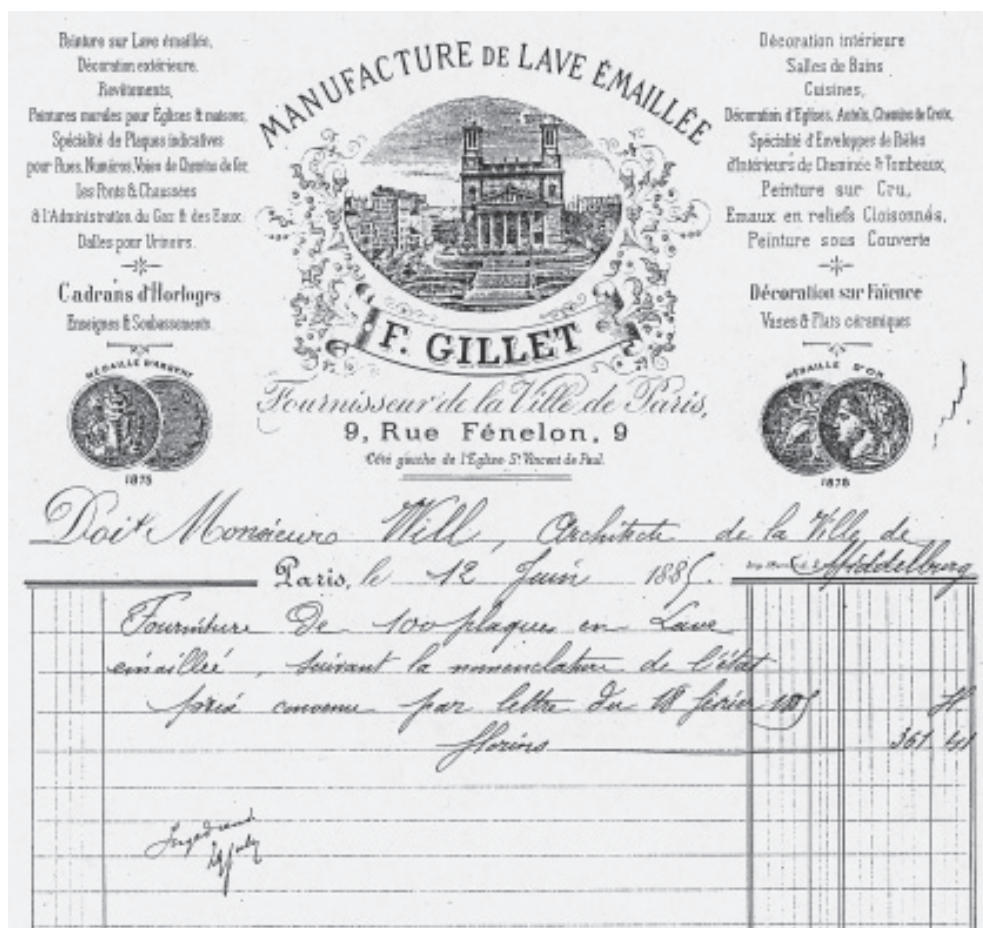 Peinture sur Lave émaillée,
Décoration extérieure.
Revêtements,
Peintures murales pour Églises & maisons,
Spécialité de Plaques indicatives
pour Rues, Numéros, Voies de Chemins de fer,
les Ponts & Chaussées
& l'Administration du Gaz & des Eaux
Dalles pour Urinoirs.
Cadrans d'Horloges
Enseignes & Soubassements
MÉDAILLE D'ARGENT
1875
MANUFACTURE DE LAVE ÉMAILLÉE
F. GILLET
Fournisseur de la Ville de Paris,
9, Rue Fénelon, 9
Côté gauche de l'Eglise St Vincent de Paul.
Décoration intérieure
Salles de Bains
Cuisines,
Décoration d'Eglises, Autels, Chemins de Croix,
Spécialité d'Enveloppes de Poêles
d'Intérieurs de Cheminée & Tombeaux,
Peinture sur Cru,
Emaux en reliefs Cloisonnés,
Peinture sous Couverte
Décoration sur Faïence
Vases & Plats céramiques
MÉDAILLE D'OR
1878
Doit Monsieur Will, Architecte de la Ville de
Middelburg
Paris, le 12 Juin 1885.
Fourniture De 100 plaques en Lave
émaillée, suivant la nomenclature de l'état
prix convenu par lettre du 18 février
fl
florins 361 41